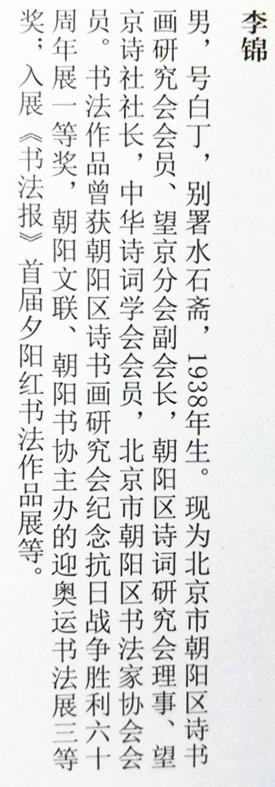 李锦
男，号白丁，别署水石斋，1938年生。现为北京市朝阳区诗书
画研究会会员、望京分会副会长，朝阳区诗词研究会理事、望
京诗社社长，中华诗词学会会员，北京市朝阳区书法家协会会
员。书法作品曾获朝阳区诗书画研究会纪念抗日战争胜利六十
周年展一等奖，朝阳文联、朝阳书协主办的迎奥运书法展三等
奖；入展《书法报》首届夕阳红书法作品展等。